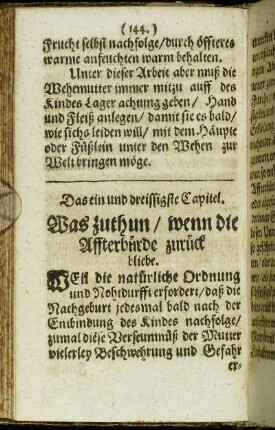 (144.)
Frucht selbst nachfolge/durch öffteres
warme anfeuchten warm behalten.
Unter dieser Arbeit aber muß die
Wehemutter immer mitzu auff des
Kindes Lager achtung geben/ Hand
und Fleiß anlegen/ damit sie es bald/
wie sichs leiden will/ mit dem Häupte
oder Füßlein unter den Wehen zur
Welt bringen möge.
Das ein und dreissigste Capitel.
Was zuthun/ wenn die
Affterbürde zurück
bliebe.
WEil die natürliche Ordnung
und Nohtdurfft erfordert/ daß die
Nachgeburt jedesmal bald nach der
Entbindung des Kindes nachfolge/
zumal diese Verseumnüß der Mutter
vielerley Beschwehrung und Gefahr
er-